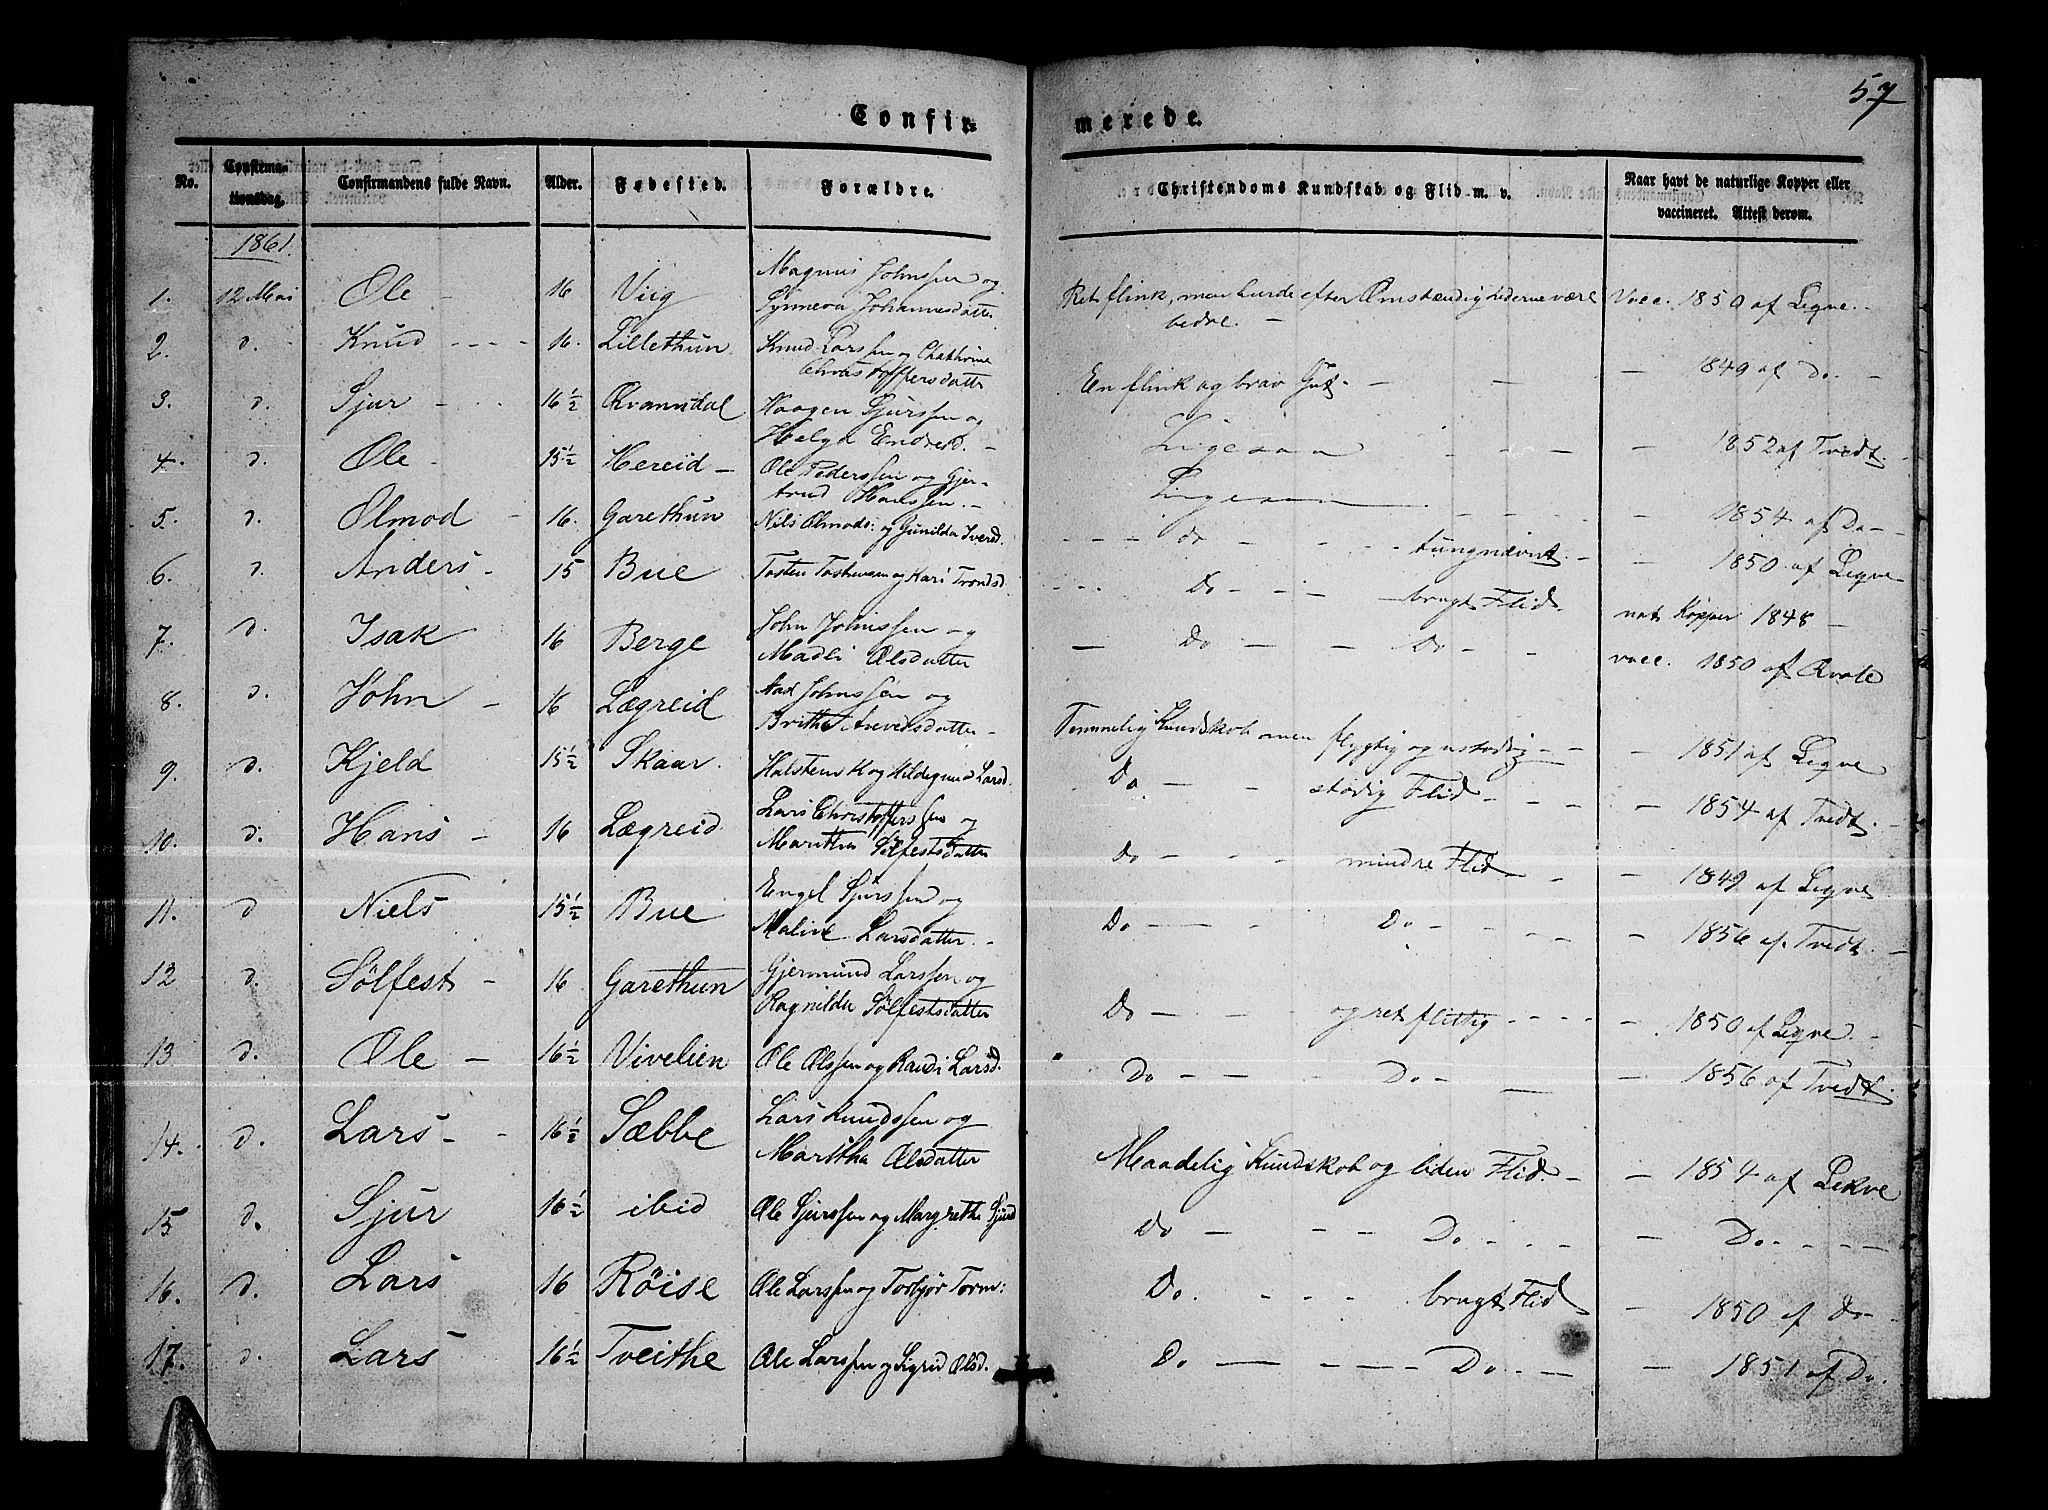 57
Confir-
merede.
No.
Confirma-
tionsdag.
Confirmandens fulde Navn.
Alder.
Fødested.
Forældre.
Christendoms Kundskab og Flid m. v.
Naar havt de naturlige Kopper eller
vaccineret. Attest derom.
1861.
Magnus Johnssen og
1. 12 Mai Ole - 16 Viig Synneva Johannesdatter Ret flink, men burde efter Omstændighederne være Vacc. 1850 af Leqve.
bedre. -
2. d. Knud - - - - 16. Lillethun Knud Larssen og Chathrine
Christoffersdatter En flink og brav Gut. - - - 1849 af Do. -
3. d. Sjur - 16½ Qvanndal Haagen Sjurssen og
Helga Endresd. - Ligesaa - - - - - 1852 af Tvedt.
4. d. Ole - 15½ Hereid - Ole Pederssen og Gjer-
trud Hanssen. - Ligesaa - - - - 1854 af Do -
5. d. Olmod - 16. Garethun Nils Olmods: og Gunilda Iversd. - - - do - - - - tungnævnt. - - 1850 af Leqve
6. d. Anders - 15 Bue Tosten Tostenssen og Kari Trondsd. - - - Do - - - brugt Flid nat. Kopper 1848 -
7. d. Isak 16 Berge John Johnssen og
Madli Olsdatter - Do - - Do - - vacc. 1850 af Qvale
8. d. John - 16 Lægreid Aad Johnssen og
Brithe Arvedsdatter - Temmelig Kundskab men flygtig og ustadig - - - 1851 af Leqve
9. d. Kjeld 15½ Skaar. Halsten K og Hildegunn Larsd. Do - - stadig Flid - - - - 1854 af Tvedt.
10. d. Hans - 16 Lægreid Lars Christofferssen og
Maritha Sølfestsdatter Do - - - mindre Flid - - - 1849 af Leqve
11. d Niels 15½ Bue Engel Sjurssen og
Maline Larsdatter. - Do - - - Do - - - - 1856 af Tvedt.
12 d. Sølfest - 16 Garethun Gjermund Larssen og
Ragnilda Sølfestsdatter Do - - - og ret flittig - - - - - 1850 af Leqve.
13 d. Ole - 16½ Vivelien Ole Olssen og Randi Larsd. Do - - - Do - - - 1856 af Tvedt.
14. d. Lars - - 16½ Sæbbe Lars Knudssen og
Maritha Olsdatter Maadelig Kundskab og liden Flid. - - 1854 af Lekve
15 d. Sjur 16½ ibid Ole Sjurssen og Margrethe Sjursd Do - - - Do - - - - Do - - - -
16. d. Lars 16 Röise Ole Larssen og Torbjør Torm: Do. - - - brugt Flid - 1850 af Do -
17. d. Lars 16½ Tveithe Ole Larssen og Sigrid Olsd. Do - - - - Do - - - 1851 af Do.